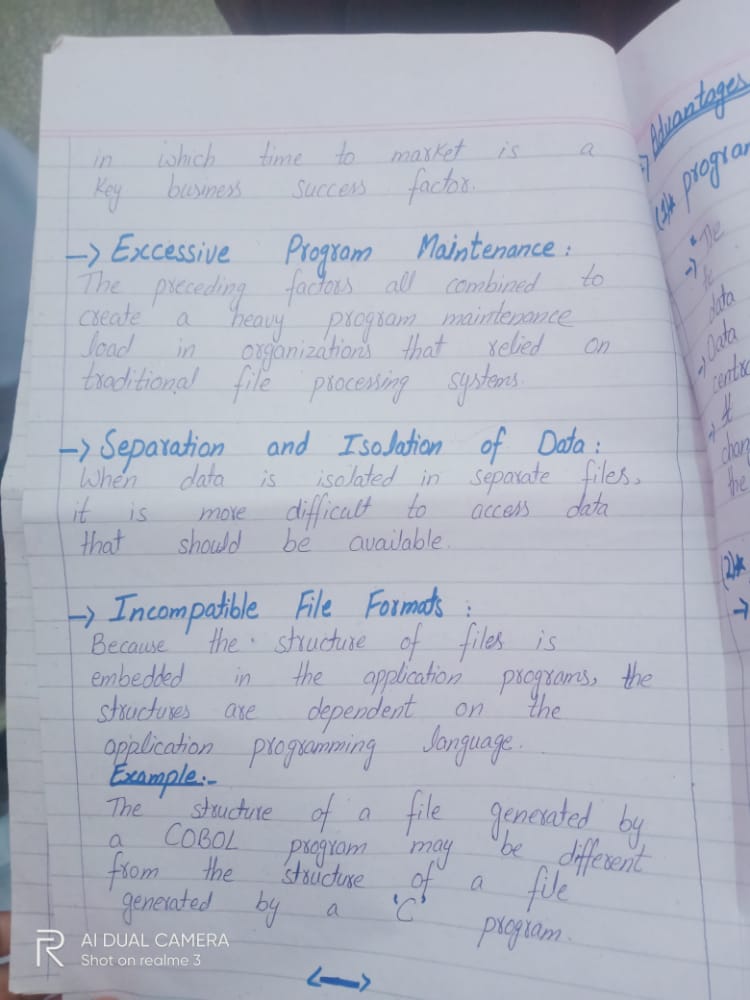 in which time to market is a
key business success factor.
-> Excessive Program Maintenance :
The preceding factors all combined to
create a heavy program maintenance
load in organizations that relied on
traditional file processing systems.
-> Separation and Isolation of Data :
When data is isolated in separate files,
it is more difficult to access data
that should be available.
-> Incompatible File Formats :
Because the structure of files is
embedded in the application programs, the
structures are dependent on the
application programming language.
Example:-
The structure of a file generated by
a COBOL program may be different
from the structure of a file
generated by a 'C' program.
Advantages
(1)*
data
-> Data
-> It
the
(2)*
->
R AI DUAL CAMERA
Shot on realme 3